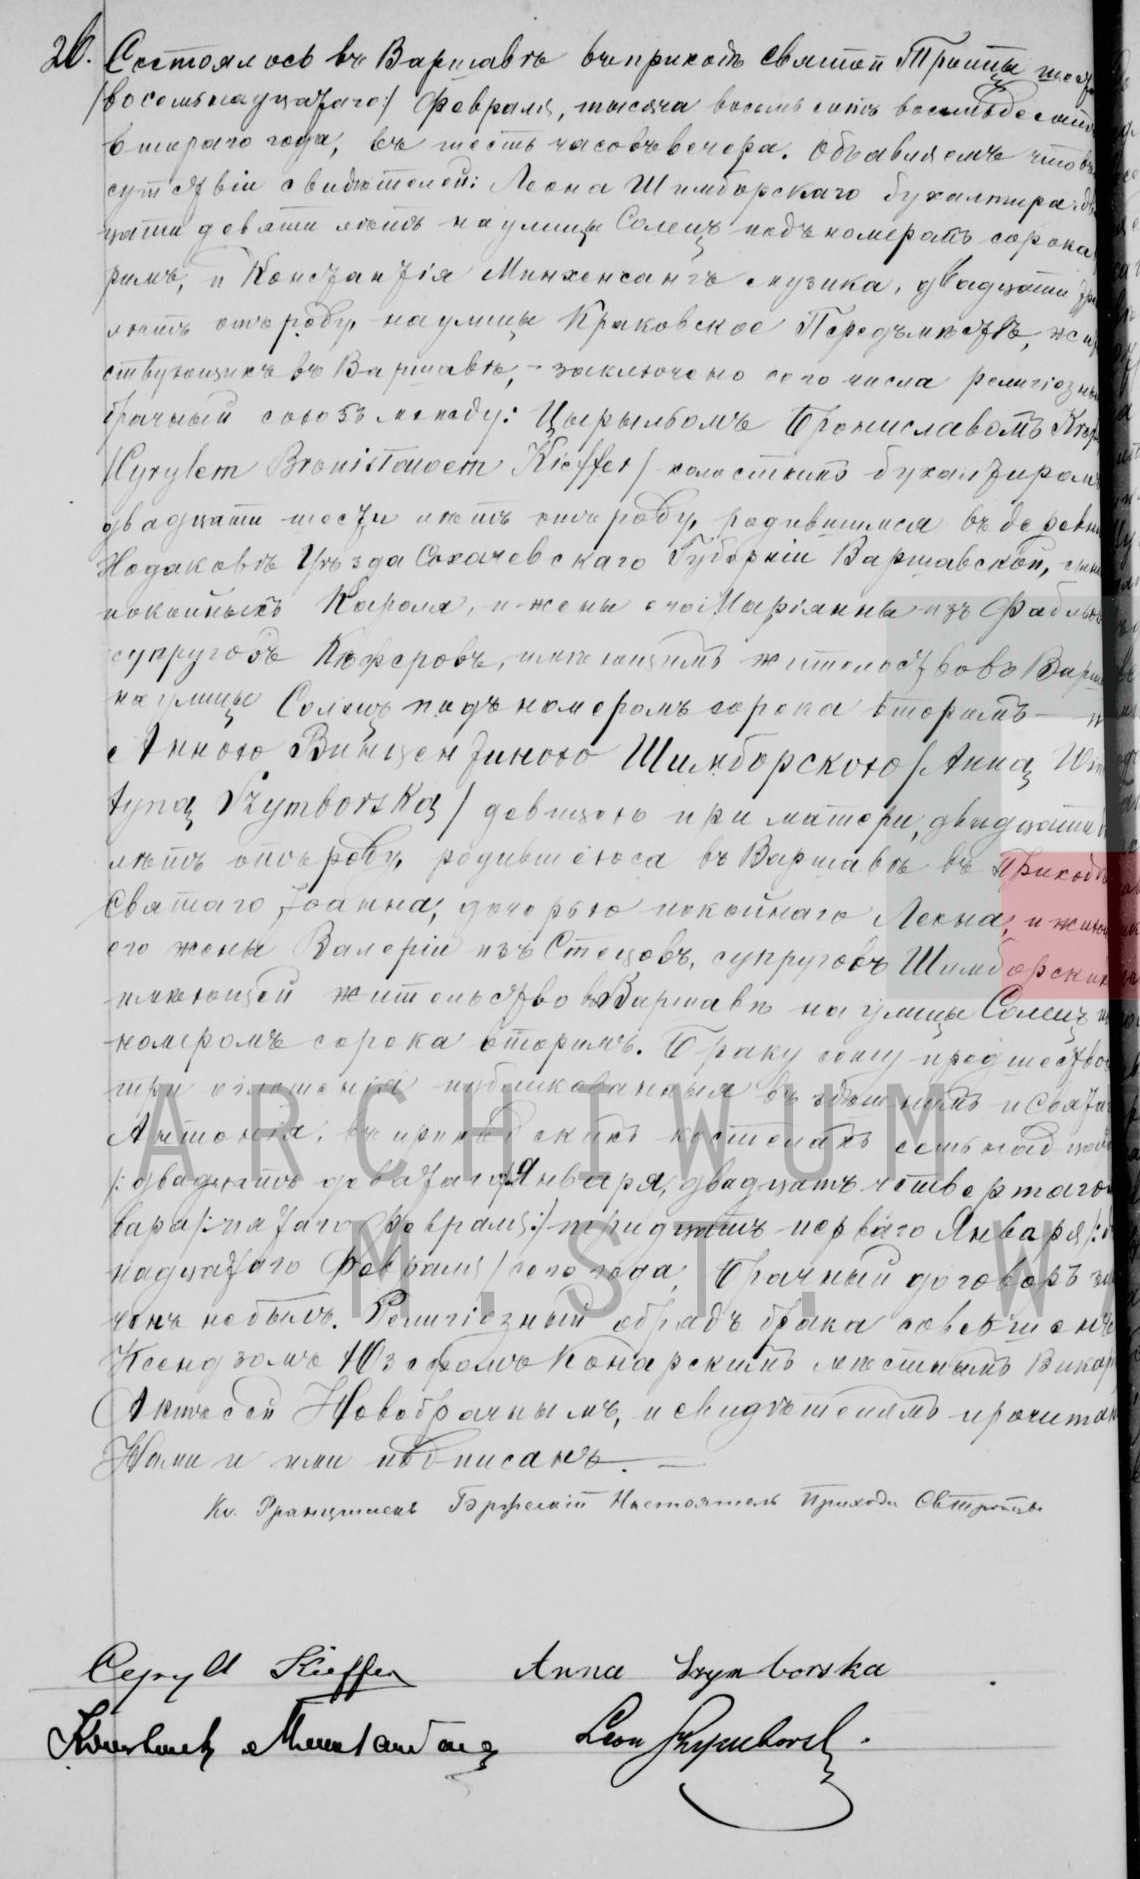 26. Состоялось въ Варшавѣ въ приходѣ Святой Троицы шест
/восемьнадцатаго:/ Февраля, тысяча восемь сотъ восемьдесятъ
втораго года, въ шесть часовъ вечера. Объявляемъ что въ
сутствіи свидѣтелей: Леона Шимборскаго бухалтира дв
цати девяти лѣтъ на улицы Солецъ подъ номеромъ сорока
рымъ, и Константія Минхенсангъ музика, двадцати
лѣтъ отъ роду, на улицы Краковское Передъмѣстѣ, жи
ствующихъ въ Варшавѣ, – заключено сего числа религіозны
брачный союзъ между: Цырыльомъ Брониславомъ
/Cyrylem Bronisławem Kieffer/ холостымъ бухалтиромъ
двадцати шести лѣтъ отъ роду, родившимся въ деревни
Уѣзда Сохачевскаго Губерніи Варшавской, сыно
покойныхъ Кароля, и жены его Маріянны изъ
супруговъ Кѣферовъ, имѣющимъ жительство въ Варш
на улицы Солецъ подъ номеромъ сорока вторымъ — и
Анною Винцентиною Шимборскою /Anną Win
tyną Szymborską/ девицею при матери, двадцати
лѣтъ отъ роду, родившеюся въ Варшавѣ въ Приходѣ
Святаго Іоанна, дочерью покойнаго Леона, и жив
его жены Валеріи изъ Стецовъ, супруговъ Шимборских
имѣющей жительство въ Варшавѣ на улицы Солецъ
номеромъ сорока вторымъ. Браку сему предшество
три оглашенія публикованныя въ здѣшнемъ и Свята
Антонія, въ приходскихъ костелахъ семьнадцат
/:двадцать деватаго:/ Января, двадцать четвертаго
варя /:пятаго Февраля:/ тридцать перваго Января /:
надцатаго Февраля/ сего года, Брачный договоръ
ченъ небылъ. Религіозный обрядъ брака совершенъ
Ксендзомъ Юзефомъ Конарскимъ мѣстнымъ Викар
Актъ сей Новобрачнымъ, и свидѣтелямъ прочитан
Нами и ими подписанъ. —
Кс. Францишекъ Настоятель Прихода Св Троицы
Cyryll Kieffer Anna Szymborska
Leon Szymborski.
ARCHIWUM
M. ST. W